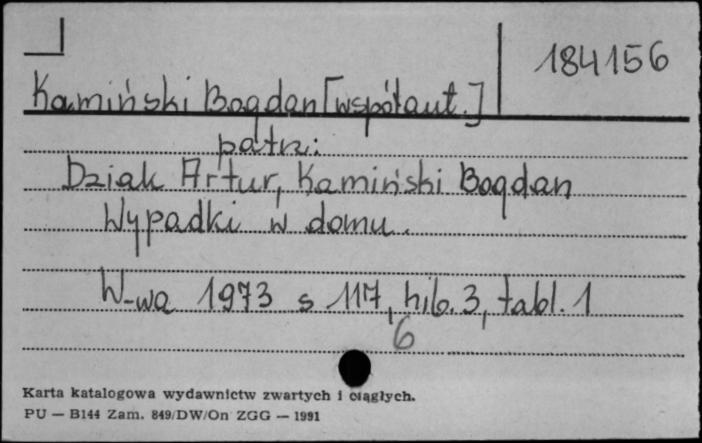 184156
Kamiński Bogdan [współaut.]
patrz:
Dziak Artur, Kamiński Bogdan
Wypadki w domu.
W-wa 1973 s 117, nlb. 3, tabl. 1
6
Karta katalogowa wydawnictw zwartych i ciągłych.
PU — B144 Zam. 849/DW/On ZGG — 1991